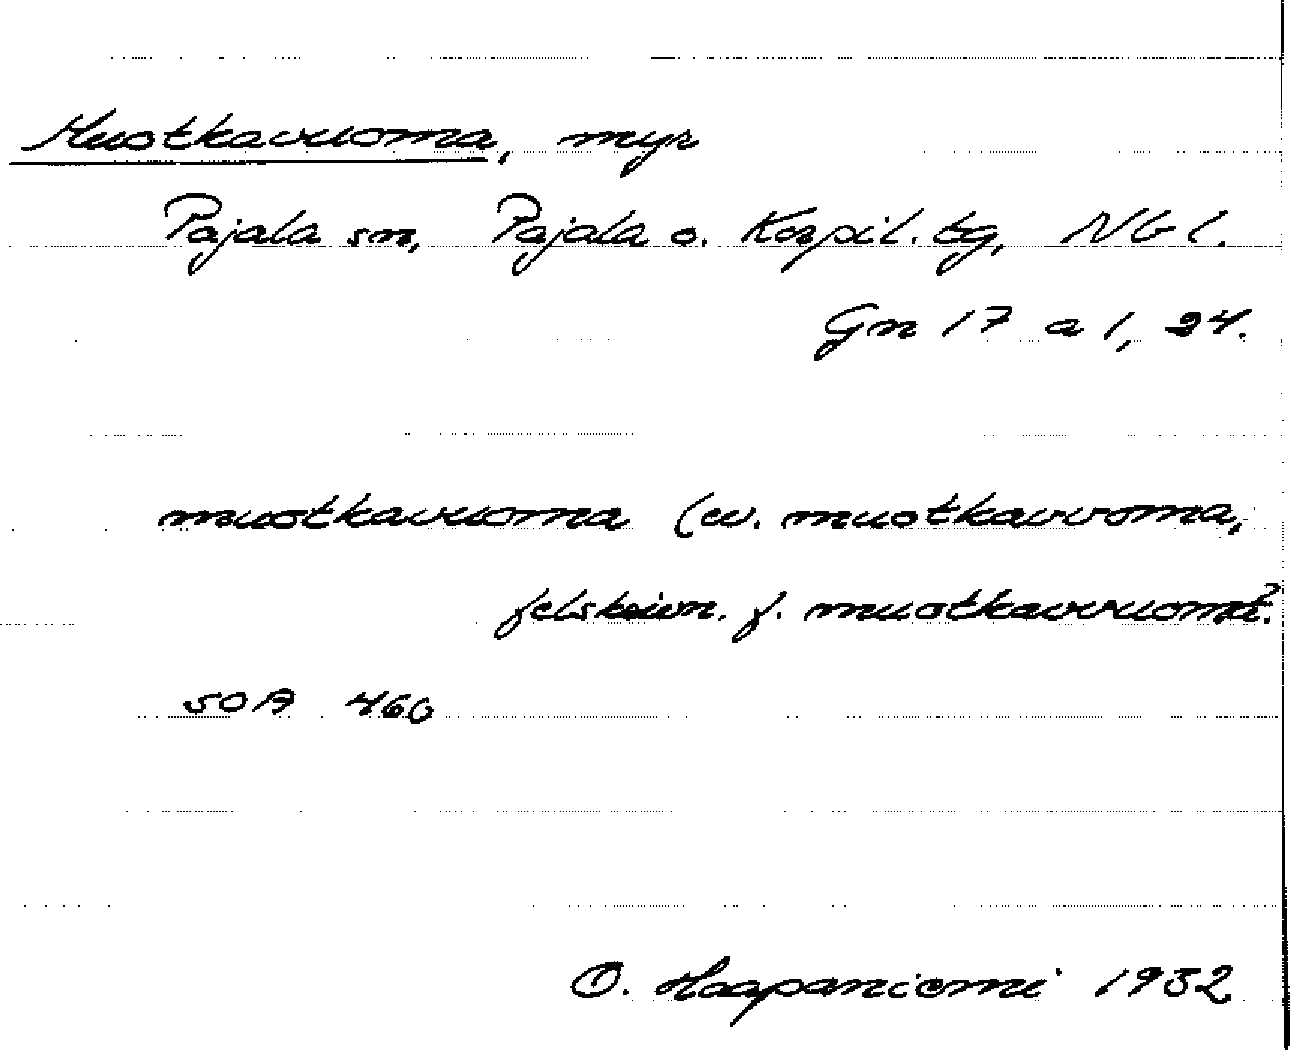 Muotkavuoma, myr
Pajala sn, Pajala o. Korpil. tg, NG l.
Gn 17 a 1, 24.
muotkavuoma (ev. muotkavvoma,
felskrivn. f. muotkavvuoma?
SOA 460
O. Haapaniemi 1932